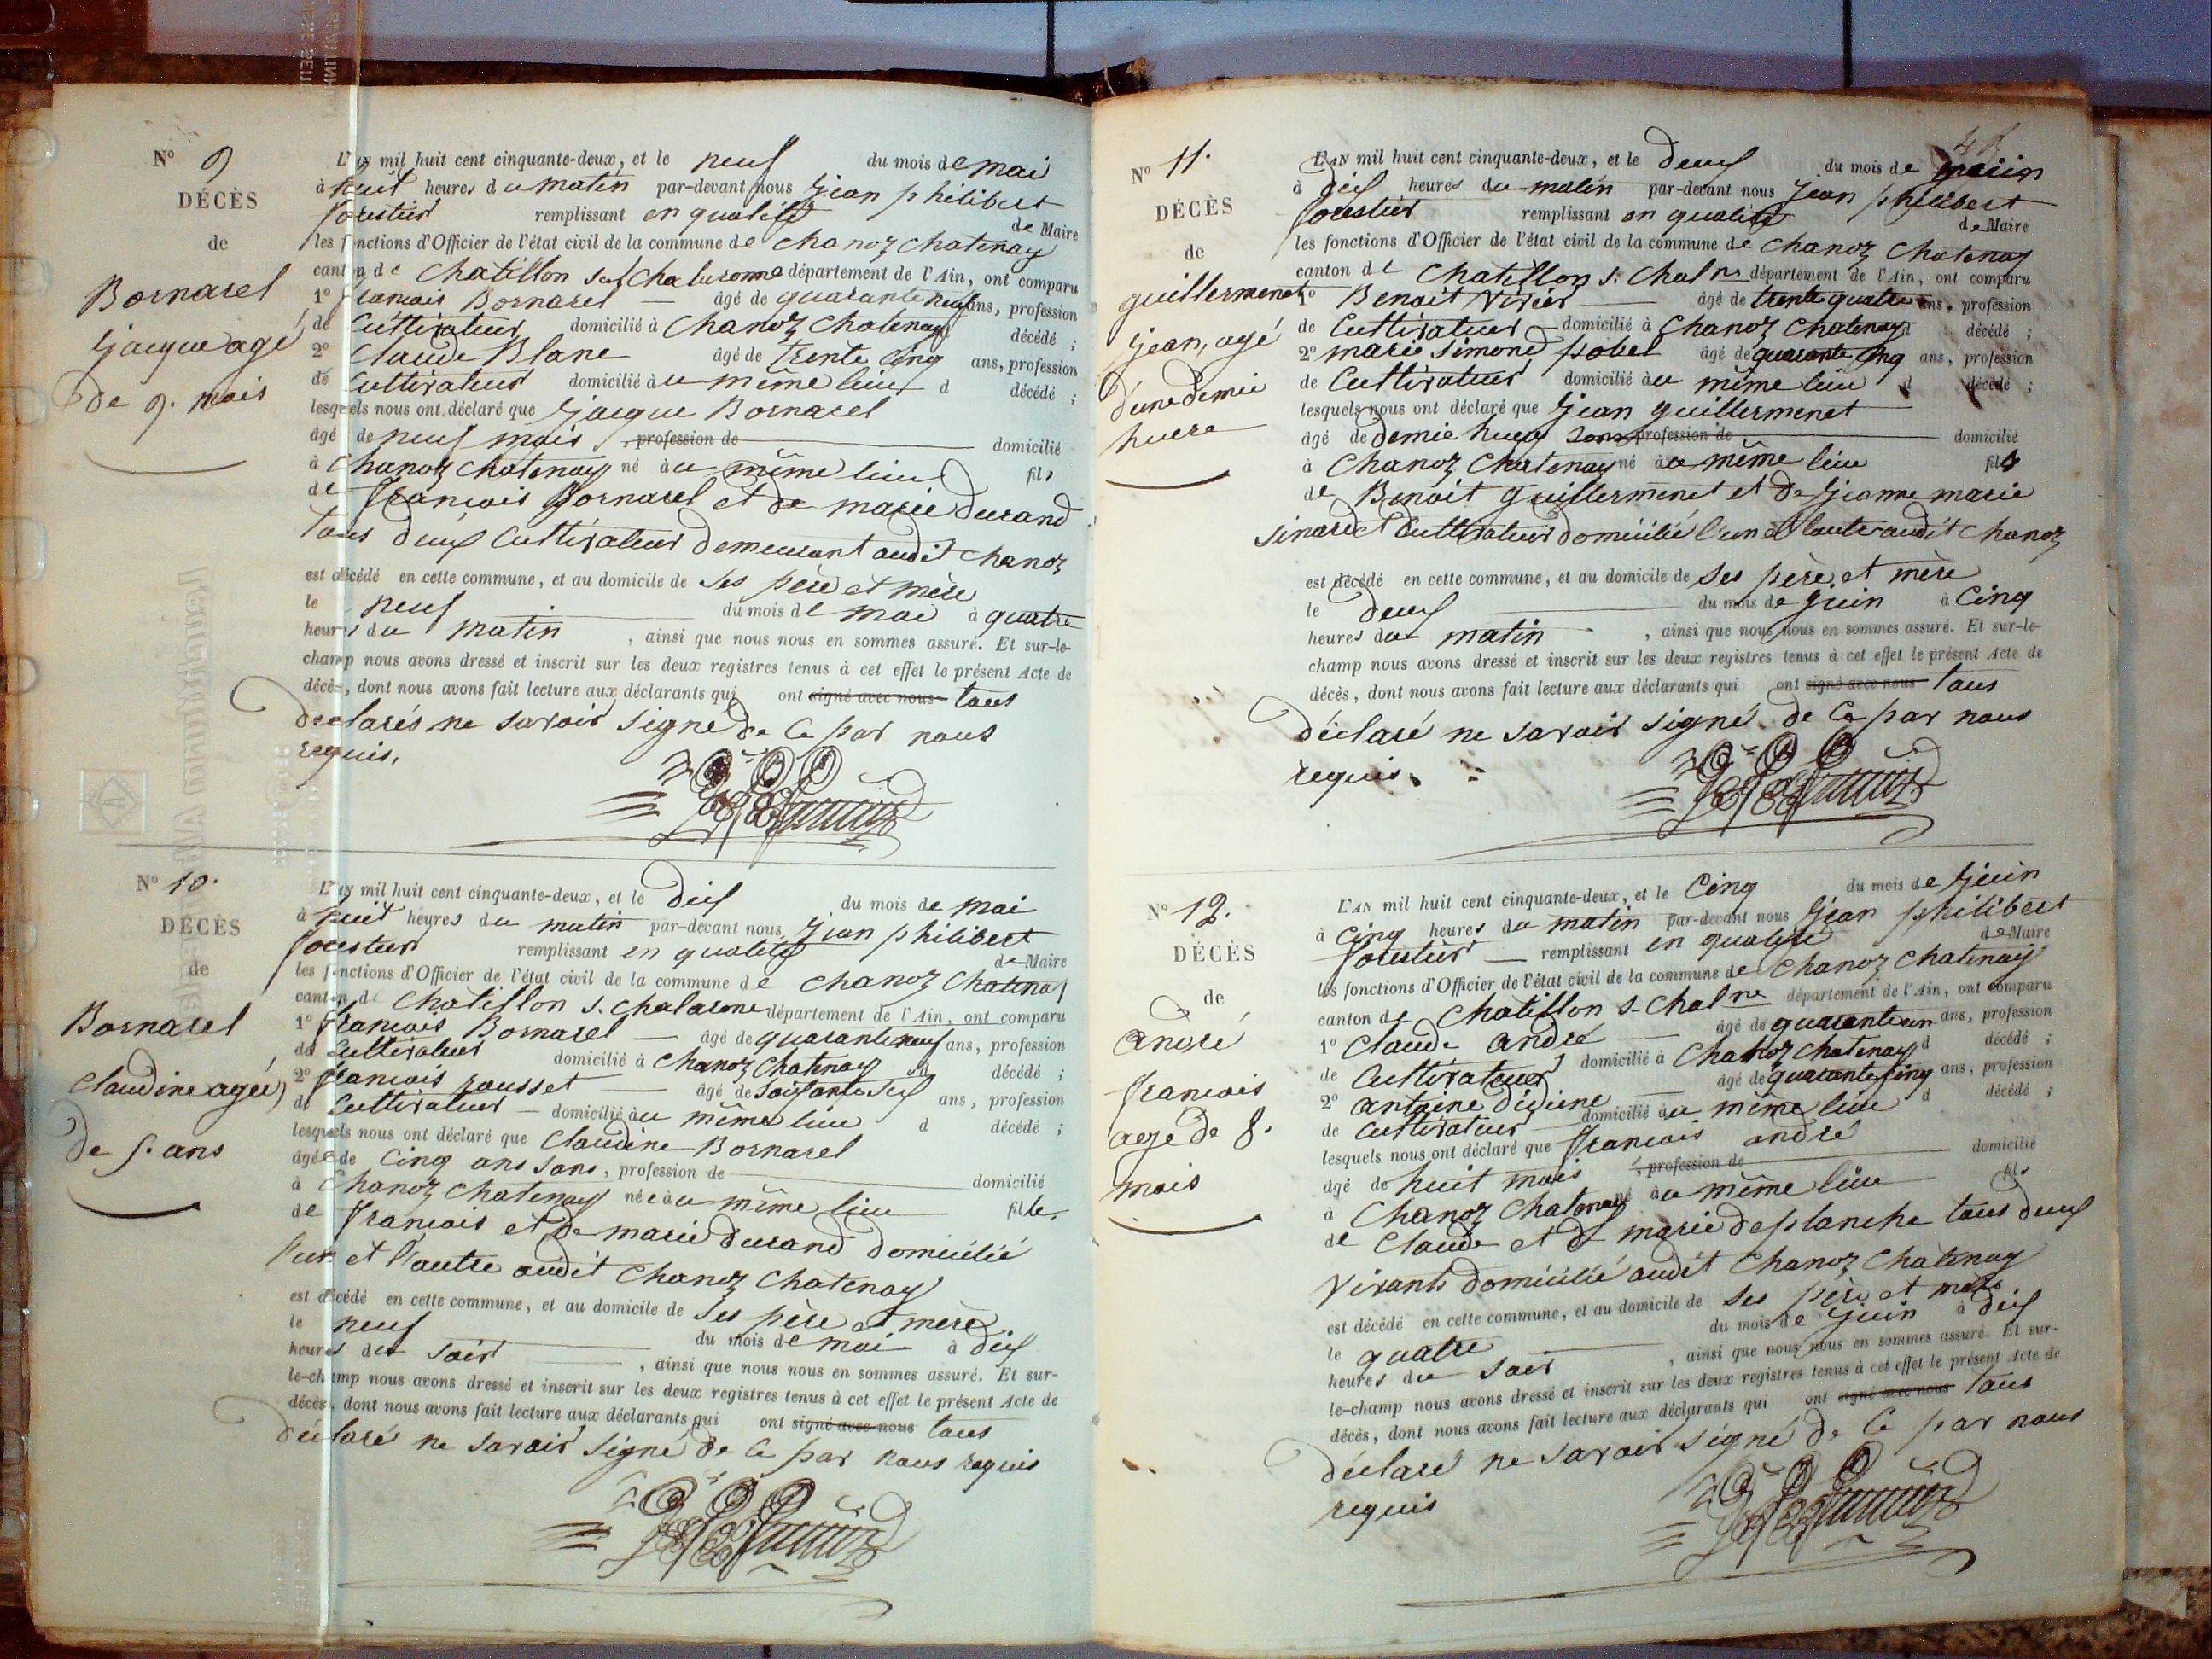 N° 9
DÉCÈS
de
Bornarel
Jacque agé
de 9. mois
L'An mil huit cent cinquante-deux, et le neuf du mois de mai
à huit heures du matin par-devant nous Jean philibert
forestier remplissant en qualité de Maire
les fonctions d'Officier de l'état civil de la commune de chanoz chatenay
canton de Chatillon sur Chalaronne département de l'Ain, ont comparu
1° francois Bornarel âgé de quarante neuf ans, profession
de Cultivateur domicilié à Chanoz Chatenay décédé ;
2° Claude Blanc âgé de trente cinq ans, profession
de Cultivateur domicilié au même lieu d décédé ;
lesquels nous ont déclaré que Jacque Bornarel
âgé de neuf mois , profession de domicilié
à Chanoz Chatenay né au même lieu fils
de francois Bornarel et de marie durand
tous deux Cultivateur demeurant audit chanoz
est décédé en cette commune, et au domicile de ses père et mère
le neuf du mois de mai à quatre
heures du matin , ainsi que nous nous en sommes assuré. Et sur-le-
champ nous avons dressé et inscrit sur les deux registres tenus à cet effet le présent Acte de
décès, dont nous avons fait lecture aux déclarants qui ont signé avec nous tous
declarés ne savoir signé de ce par nous
requis.
N° 10.
DÉCÈS
de
Bornarel
Claudine agée
de 5. ans
L'An mil huit cent cinquante-deux, et le dix du mois de mai
à huit heures du matin par-devant nous, Jean philibert
forestier remplissant en qualité de Maire
les fonctions d'Officier de l'état civil de la commune de Chanoz Chatenay
canton de Chatillon s. Chalarone département de l'Ain, ont comparu
1° francois Bornarel âgé de quarante neuf ans, profession
de Cultivateur domicilié à Chanoz Chatenay d décédé ;
2° francois rousset âgé de soixante six ans, profession
de Cultivateur domicilié au même lieu d décédé ;
lesquels nous ont déclaré que Claudine Bornarel
âgée de Cinq ans sans, profession de domicilié
à Chanoz Chatenay née au même lieu fille
de francois et de marie durand domicilié
l'un et l'autre audit Chanoz Chatenay
est décédé en cette commune, et au domicile de ses père et mère
le neuf du mois de mai à dix
heures du soir , ainsi que nous nous en sommes assuré. Et sur-
le-champ nous avons dressé et inscrit sur les deux registres tenus à cet effet le présent Acte de
décès, dont nous avons fait lecture aux déclarants qui ont signé avec nous tous
déclaré ne savoir signé de ce par nous requis
N° 11.
DÉCÈS
de
guillermenet
Jean, agé
d'une demie
huere
L'An mil huit cent cinquante-deux, et le deux du mois de
à dix heures du matin par-devant nous Jean philibert
forestier remplissant en qualité de Maire
les fonctions d'Officier de l'état civil de la commune de Chanoz Chatenay
canton de Chatillon s. Chalne département de l'Ain, ont comparu
1° Benoit Vivier âgé de trente quatre ans, profession
de Cultivateur domicilié à Chanoz Chatenay d décédé ;
2° marie Simond pobel âgé de quarante cinq ans, profession
de Cultivateur domicilié au même lieu d décédé ;
lesquels nous ont déclaré que Jean guillermenet
âgé de demie huere sans profession de domicilié
à Chanoz Chatenay né au même lieu fils
de Benoit guillermenet et de Jeanne marie
Sinardet Cultivateur domicilié l'un et l'autre audit Chanoz
est décédé en cette commune, et au domicile de ses père et mère
le deux du mois de Juin à Cinq
heures du matin , ainsi que nous nous en sommes assuré. Et sur-le-
champ nous avons dressé et inscrit sur les deux registres tenus à cet effet le présent Acte de
décès, dont nous avons fait lecture aux déclarants qui ont signé avec nous tous
déclaré ne savoir signé de ce par nous
requis
N° 12.
DÉCÈS
de
andré
francois
age de 8.
mois
L'An mil huit cent cinquante-deux, et le Cinq du mois de Juin
à Cinq heures du matin par-devant nous Jean philibert
forestier remplissant en qualité de Maire
les fonctions d'Officier de l'état civil de la commune de Chanoz Chatenay
canton de Chatillon s. Chalne département de l'Ain, ont comparu
1° Claude André âgé de quarante un ans, profession
de Cultivateur domicilié à Chanoz Chatenay d décédé ;
2° Antoine âgé de quarante cinq ans, profession
de Cultivateur domicilié au même lieu d décédé ;
lesquels nous ont déclaré que francois andré
âgé de huit mois , profession de domicilié
à Chanoz Chatenay né au même lieu fils
de Claude et de marie desplanche tous deux
vivants domicilié audit Chanoz Chatenay
est décédé en cette commune, et au domicile de ses père et mère
le quatre du mois de Juin à dix
heures du soir , ainsi que nous nous en sommes assuré. Et sur-
le-champ nous avons dressé et inscrit sur les deux registres tenus à cet effet le présent Acte de
décès, dont nous avons fait lecture aux déclarants qui ont signé avec nous tous
déclaré ne savoir signé de ce par nous
requis